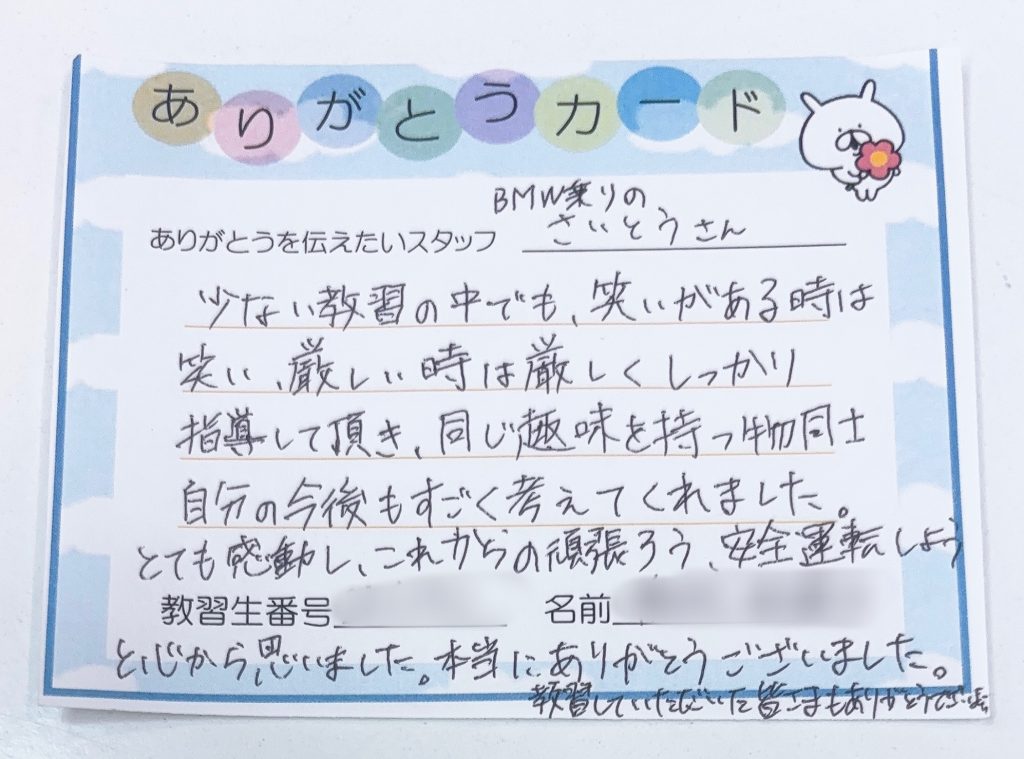 ありがとうカード
BMW乗りの
ありがとうを伝えたいスタッフ さいとうさん
少ない教習の中でも、笑いがある時は
笑い、厳しい時は厳しくしっかり
指導して頂き、同じ趣味を持つ物同士
自分の今後もすごく考えてくれました。
とても感動し、これからの頑張ろう、安全運転しよう
教習生番号 名前
と心から思いました。本当にありがとうございました。
教習していただいた皆さまもありがとうござい